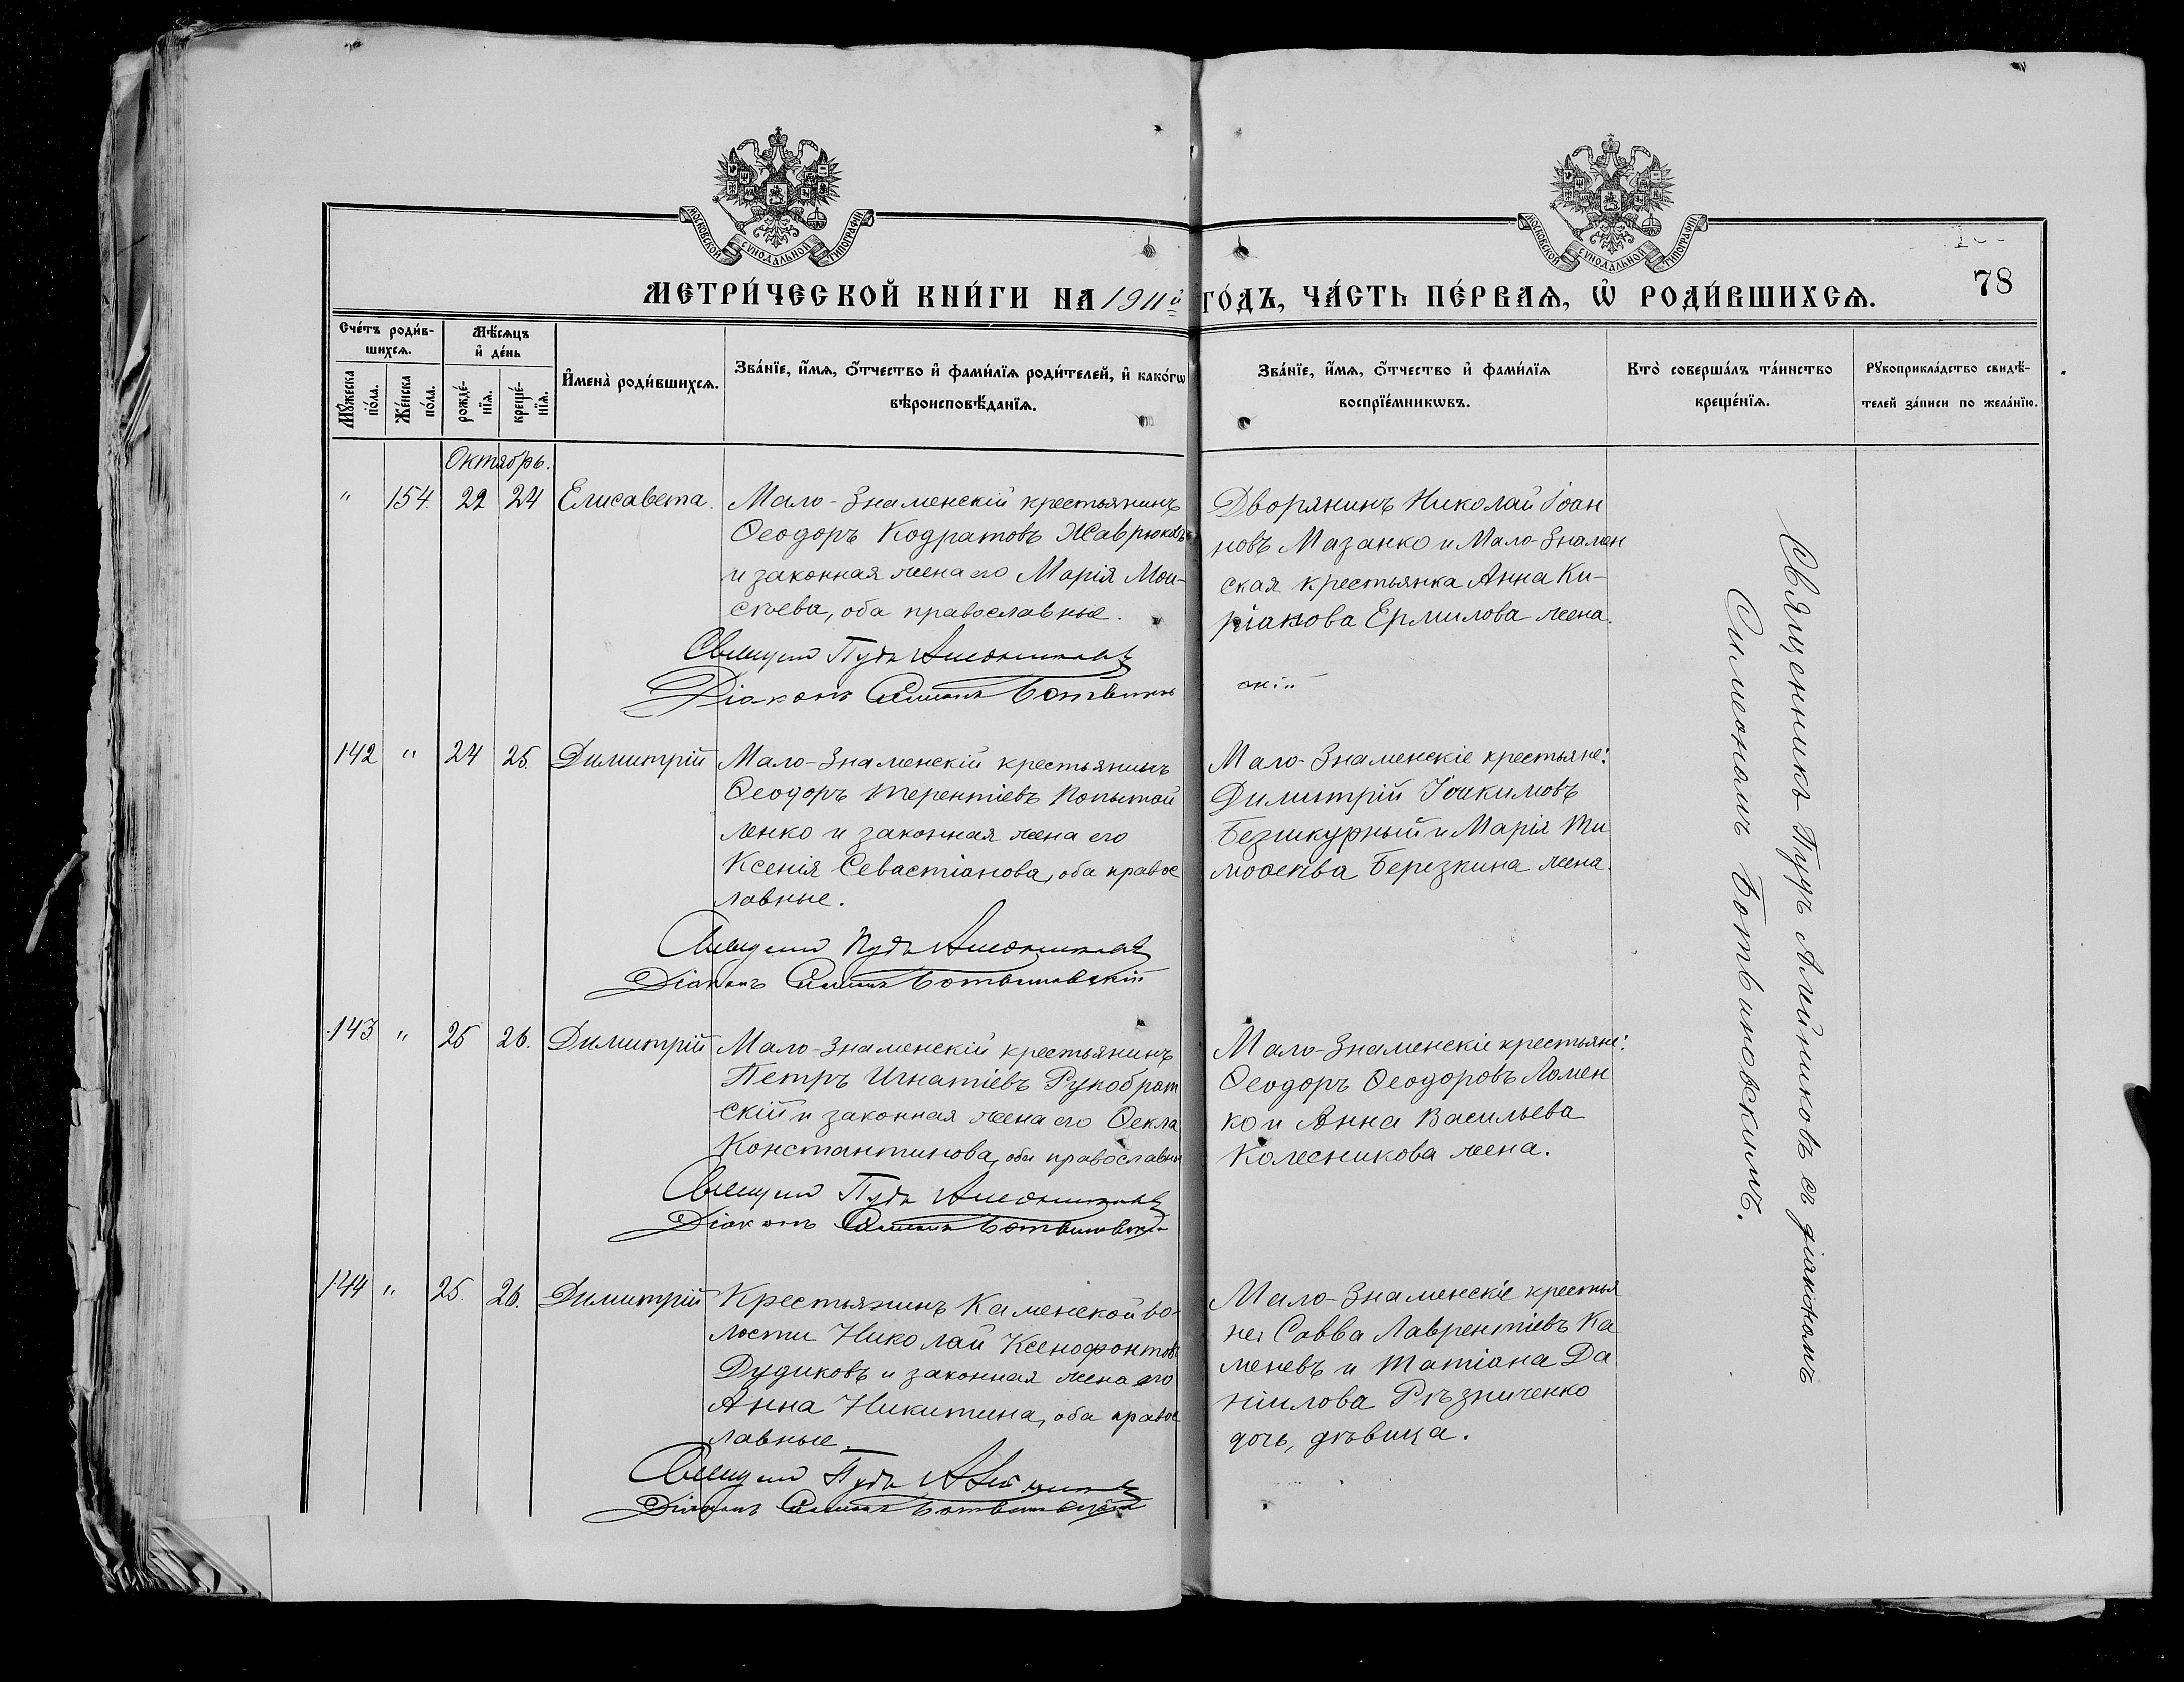 МОСКОВСКОЙ СѴНОДАЛЬНОЙ ТИПОГРАФІИ
МОСКОВСКОЙ СѴНОДАЛЬНОЙ ТИПОГРАФІИ
78
МЕТРИ́ЧЕСКОЙ КНИ́ГИ НА 1911й ГО́ДЪ, ЧА́СТЬ ПЕ́РВАѦ, Ѡ҆ РОДИ́ВШИХСѦ.
Сче́тъ роди́в-
шихсѧ.
Мѣ́сѧцъ
и҆ де́нь
Мꙋ́жеска по́ла.
Же́нска по́ла.
рожде́-
нїѧ.
креще́-
нїѧ.
И҆мена̀ роди́вшихсѧ.
Зва́нїе, и҆́мѧ, ѻ҆́тчество и҆ фами́лїѧ роди́телей, и҆ како́гѡ
вѣроисповѣ́данїѧ.
Зва́нїе, и҆́мѧ, ѻ҆́тчество и҆ фами́лїѧ
воспрїе́мникѡвъ.
Кто̀ соверша́лъ та́инство
креще́нїѧ.
Рꙋкоприкла́дство свидѣ́-
телей за́писи по жела́нїю.
Октябрь.
" 154. 22 24 Елисавета. Мало-Знаменскій крестьянинъ
Ѳеодоръ Кодратовъ Жаврюковъ
и законная жена его Марія Мои-
сѣева, оба православные.
Священн Пудъ Алейниковъ
Діаконъ Симеонъ Ботвинов
Дворянинъ Николай Іоан
новъ Мазанко и Мало-Знамен
ская крестьянка Анна Ки-
ріанова Ермилова жена.
142 " 24 25. Димитрій Мало-Знаменскій крестьянинъ
Ѳеодоръ Терентіевъ Копытой
ленко и законная жена его
Ксенія Севастіанова, оба правос
лавные.
Священн Пудъ Алейниковъ
Діаконъ Симеонъ Ботвиновскій
Мало-Знаменскіе крестьяне:
Димитрій Іоакимовъ
Безшкурный и Марія Ти
моѳеева Березкина жена.
143 " 25 26. Димитрій Мало-Знаменскій крестьянинъ
Петръ Игнатіевъ Рукобрат
скій и законная жена его Ѳекла
Константинова, оба православны
Священн Пудъ Алейниковъ
Діаконъ Симеонъ Ботвиновскій
Мало-Знаменскіе крестьяне:
Ѳеодоръ Ѳеодоровъ Ломен
ко и Анна Васильева
Колесникова жена.
144 " 25. 26. Димитрій Крестьянинъ Каменской во-
лости Николай Ксенофонтовъ
Дудиковъ и законная жена его
Анна Никитина, оба правос
лавные.
Священн Пудъ Алейниковъ
Діаконъ Симеонъ Ботвиновскій
Мало-Знаменскіе крестья
не: Савва Лаврентіевъ Ка
меневъ и Татіана Да
ніилова Рѣзниченко
дочь, дѣвица.
Священникъ Пудъ Алейниковъ съ діакономъ
Симеономъ Ботвиновскимъ.